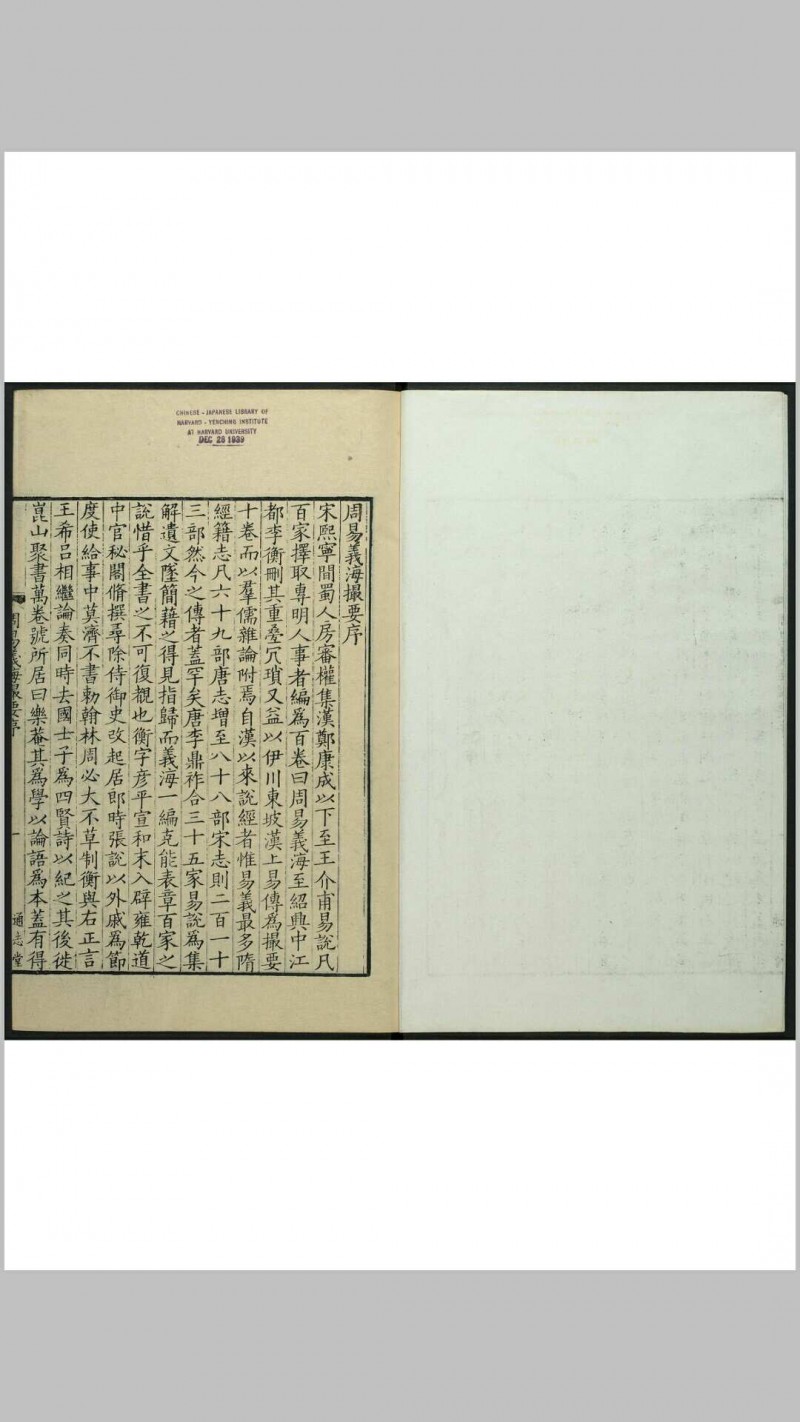 CHINESE - JAPANESE LIBRARY OF
HARVARD - YENCHING INSTITUTE
AT HARVARD UNIVERSITY
DEC 28 1939
周易義海撮要序
宋熙寧間蜀人房審權集漢鄭康成以下至王介甫易說凡
百家擇取專明人事者編為百卷曰周易義海至紹興中江
都李衡刪其重疊冗瑣又益以伊川東坡漢上易傳為撮要
十卷而以羣儒雜論附焉自漢以來說經者惟易義最多隋
經籍志凡六十九部唐志增至八十八部宋志則二百一十
三部然今之傳者蓋罕矣唐李鼎祚合三十五家易說為集
解遺文墜簡藉之得見指歸而義海一編克能表章百家之
說惜乎全書之不可復覩也衡字彥平宣和末入辟雍乾道
中官秘閣脩撰尋除侍御史改起居郎時張說以外戚為節
度使給事中莫濟不書勑翰林周必大不草制衡與右正言
王希呂相繼論奏同時去國士子為四賢詩以紀之其後徙
崑山聚書萬卷號所居曰樂菴其為學以論語為本蓋有得
周易義海撮要序
一
通志堂